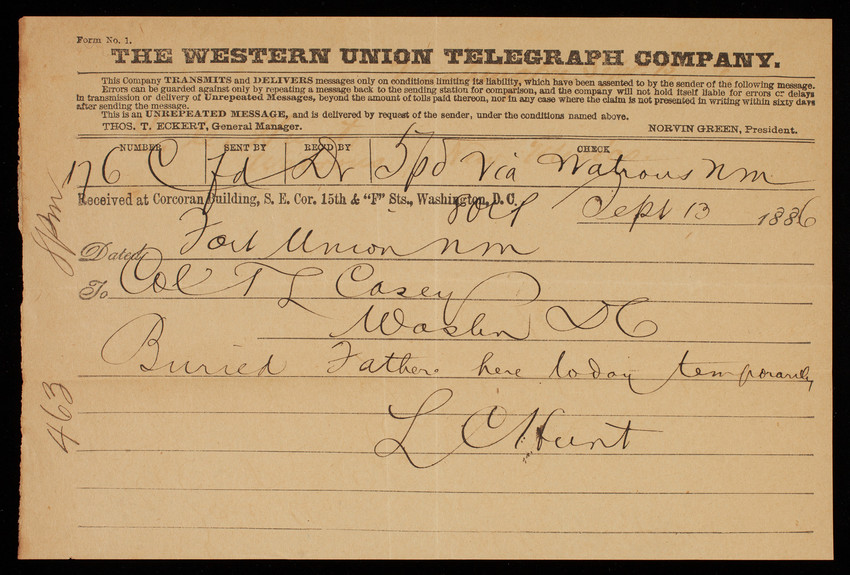 Form No. 1.
THE WESTERN UNION TELEGRAPH COMPANY.
This Company TRANSMITS and DELIVERS messages only on conditions limiting its liability, which have been assented to by the sender of the following message.
Errors can be guarded against only by repeating a message back to the sending station for comparison, and the company will not hold itself liable for errors or delays
in transmission or delivery of Unrepeated Messages, beyond the amount of tolls paid thereon, nor in any case where the claim is not presented in writing within sixty days
after sending the message.
This is an UNREPEATED MESSAGE, and is delivered by request of the sender, under the conditions named above.
THOS. T. ECKERT, General Manager. NORVIN GREEN, President.
NUMBER SENT BY REC'D BY CHECK
176 C Jd Dr 5 pd Via Watrous NM
Received at Corcoran Building, S. E. Cor. 15th & "F" Sts., Washington, D. C. Sept 13 1886
Dated Fort Union NM
To Col T L Casey
Washn DC
Buried Father here today temporarily
L C Hunt
8pm
463